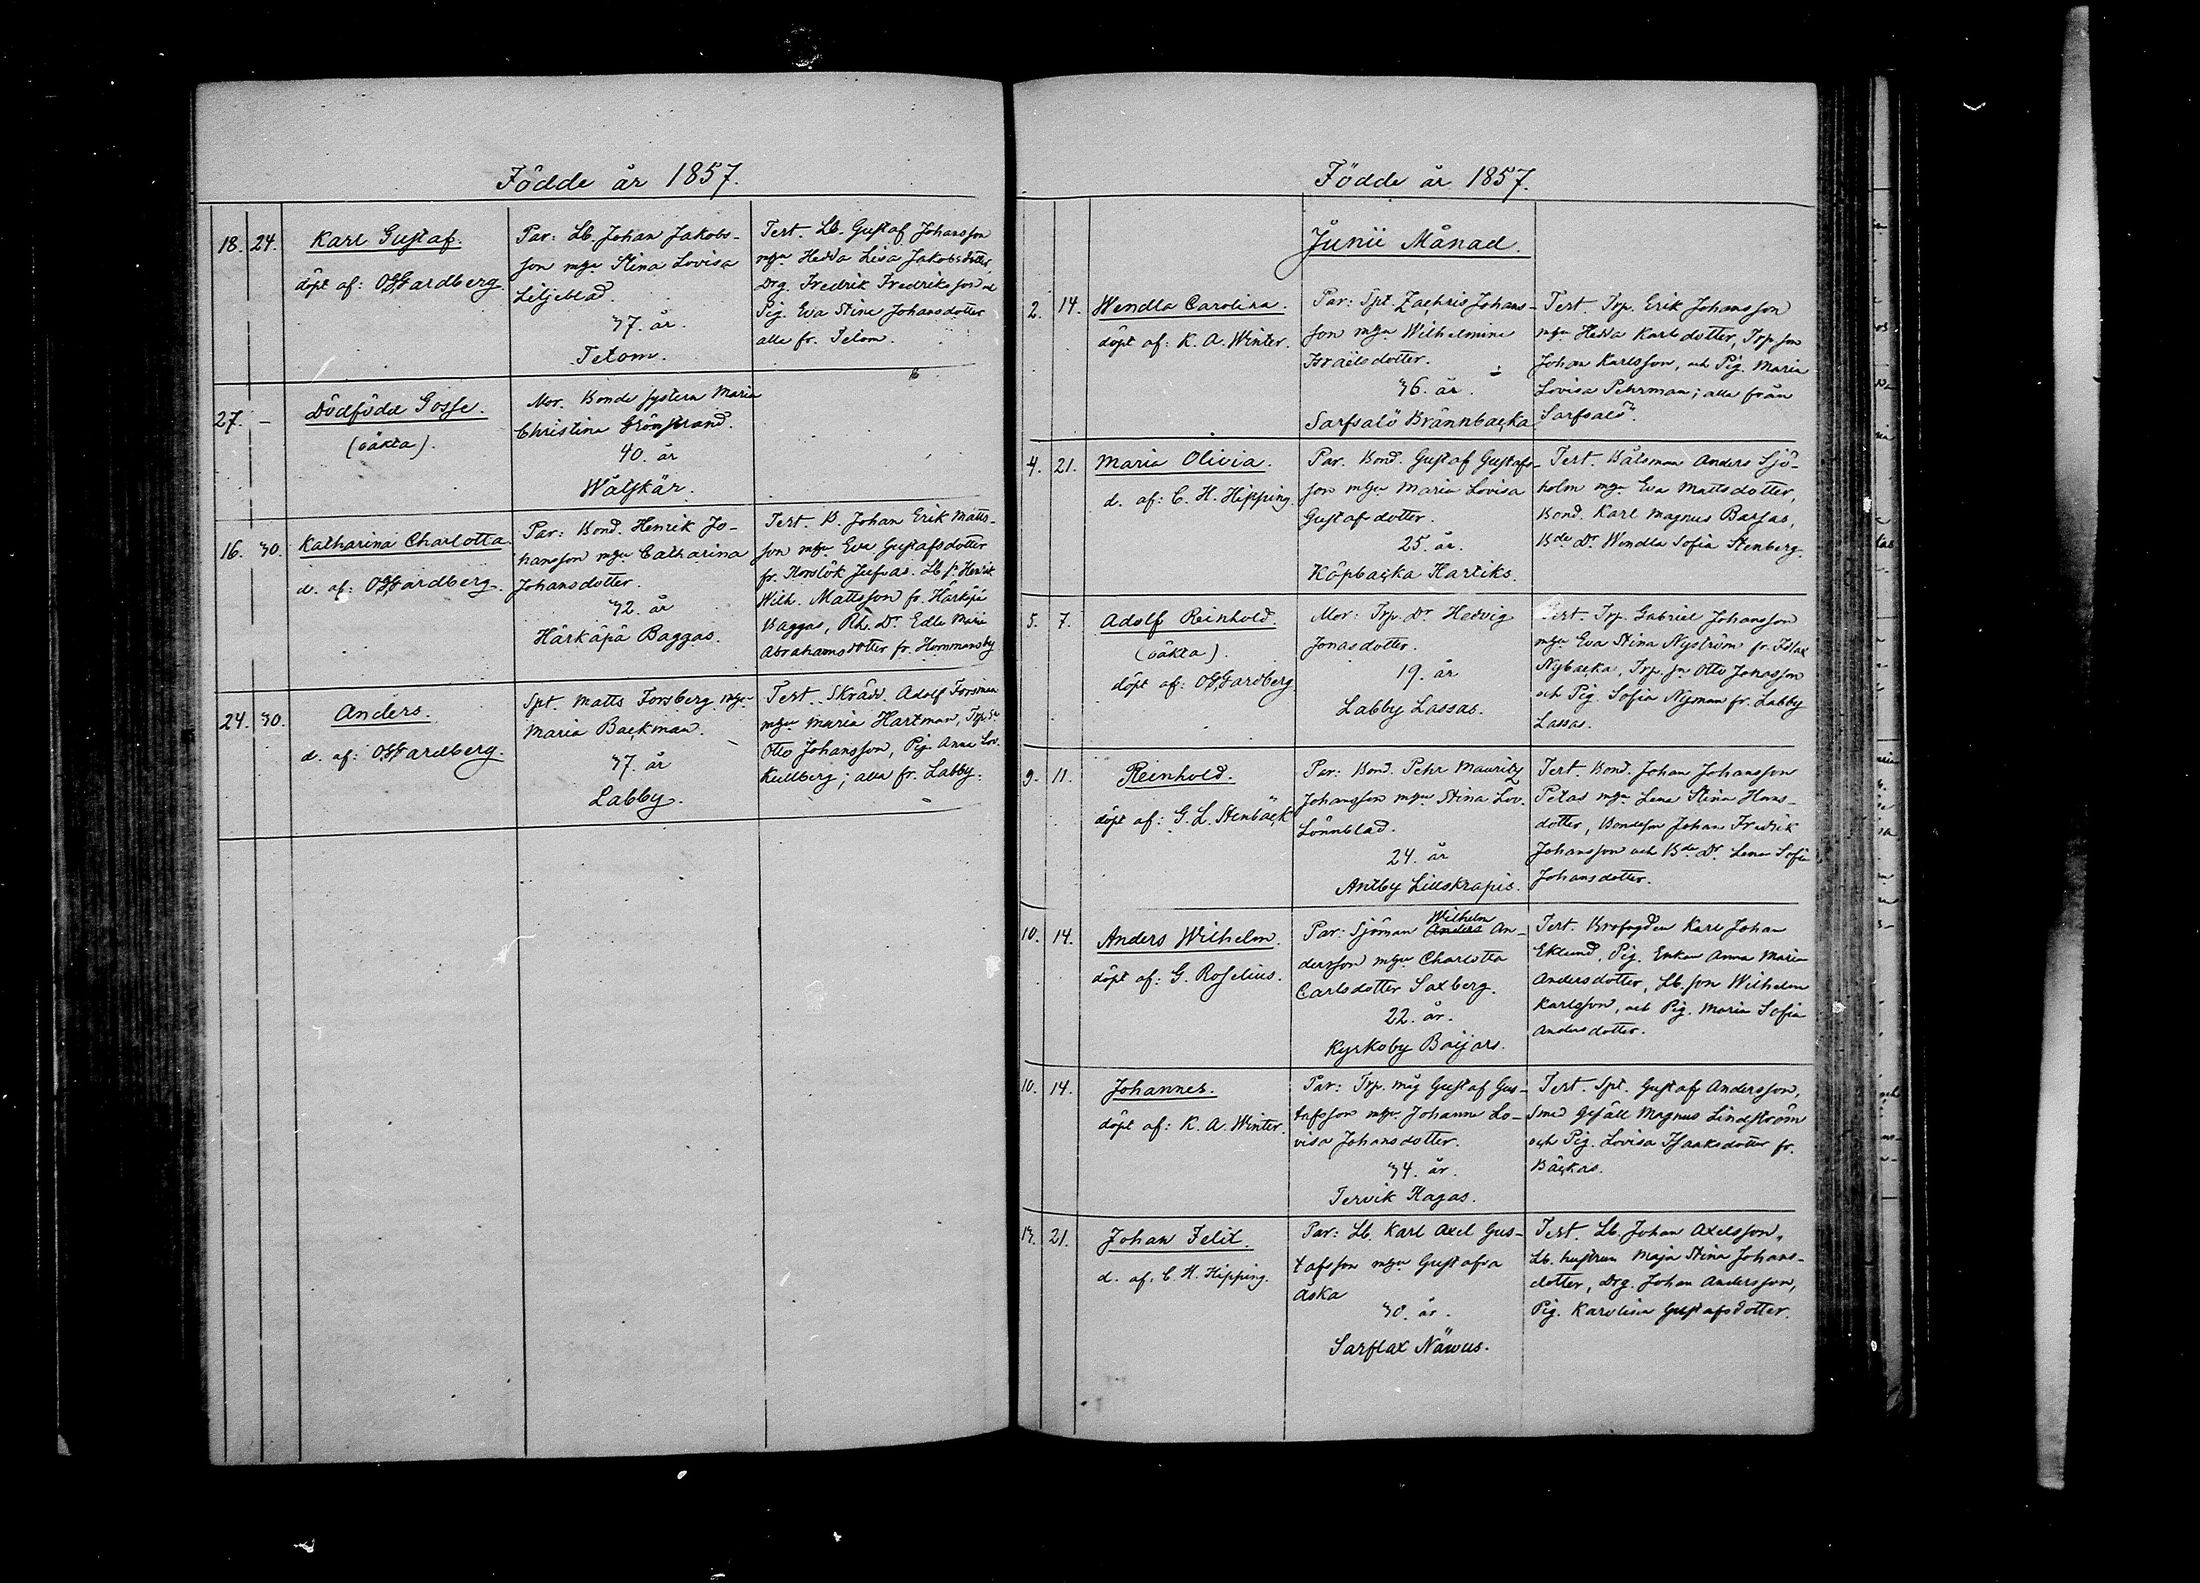 Födde år 1857.
18. 24. Karl Gustaf.
döpt af: O.G. Gardberg.
Par: Lb. Johan Jakobs-
son m hu Stina Lovisa
Liljeblad.
37. år.
Tetom.
Test. Lb. Gustaf Johansson
m hu Hedda Lisa Jakobsdotter
Drg. Fredrik Fredriksson och
Pig. Eva Stina Johansdotter
alla fr. Tetom.
27. – Dödfödd Gosse.
(oäkta).
Mor. Bonde systern Maria
Christina Grönstrand.
40. år
Walskär.
16. 30. Katharina Charlotta.
d. af: O.G. Gardberg.
Par: Bond. Henrik Jo-
hansson m hu Catharina
Johansdotter.
32. år
Härkäpä Baggas.
Test. B. Johan Erik Matts-
son m hu Eva Gustafsdotter
fr. Horslök Jufvas. Lb. s. Henrik
Wilh. Mattsson fr. Härkäpä
Baggas, Rh. Dr Edla Maria
Abrahamsdotter fr. Hommansby
24. 30. Anders.
d. af: O.G. Gardberg.
Spt. Matts Forsberg m hu
Maria Backman.
37. år
Labby.
Test. Skrädd. Adolf Forsman
m hu Maria Hartman, Trp. Sn
Otto Johansson, Pig. Anna Lov.
Kullberg; alla fr. Labby.
Födde år 1857.
Junii Månad.
2. 14. Wendla Carolina.
döpt af: K. A. Winter.
Par: Spt. Zachris Johans-
son m hu Wilhelmina
Israëlsdotter.
36. år.
Sarfsalö Brännbacka
Test. Trp. Erik Johansson
m hu Hedda Karlsdotter, Trp. son
Johan Karlsson, och Pig. Maria
Lovisa Pehrman; alla från
Sarfsalö.
4. 21. Maria Olivia.
d. af: C. H. Hipping.
Par. Bond. Gustaf Gustafs-
son m hu Maria Lovisa
Gustafsdotter.
25. år.
Köpbacka Hartiks.
Test. Båtsman Anders Sjö-
holm m hu Eva Mattsdotter,
Bond. Karl Magnus Barsas,
Bde Dr Wendla Sofia Stenberg.
5. 7. Adolf Reinhold.
(oäkta).
döpt af: O.G. Gardberg
Mor: Trp. Dr Hedvig
Jonasdotter.
19. år
Labby Lassas.
Test. Trp. Gabriel Johansson
m hu Eva Stina Nyström fr. Islax
Nybacka, Trp. sn Otto Johansson
och Pig. Sofia Nyman fr. Labby
Lassas.
9. 11. Reinhold.
döpt af: G. L. Stenbäck
Par: Bond. Pehr Mauritz
Johansson m hu Stina Lov.
Lönnblad.
24. år
Antby Lillskrapis.
Test. Bond. Johan Johansson
Petas m hu Lena Stina Hans-
dotter, Bondeson Johan Fredrik
Johansson och Bde Dr. Lena Sofia
Johansdotter.
10. 14. Anders Wilhelm.
döpt af: G. Roselius.
Wilhelm
Par: Sjöman Anders An-
dersson m hu Charlotta
Carlsdotter Saxberg.
22. år.
Kyrkoby Baijars.
Test. Brofogden Karl Johan
Eklund, Pig. Enkan Anna Maria
Andersdotter, Lb. son Wilhelm
Karlsson, och Pig. Maria Sofia
Andersdotter.
10. 14. Johannes.
döpt af: K. A. Winter.
Par: Trp. måg Gustaf Gus-
tafsson m hu Johanna Lo-
visa Johansdotter.
34. år.
Tervik Hagas.
Test. Spt. Gustaf Andersson,
Smed Gesäll Magnus Lindström
och Pig. Lovisa Isaaksdotter fr.
Bäckas.
13. 21. Johan Felix.
d. af: C. H. Hipping.
Par: Lb. Karl Axel Gus-
tafsson m hu Gustafva
Aska
30. år.
Sarflax Näwus.
Test. Lb. Johan Axelsson,
Lb. hustrun Maja Stina Johans-
dotter, Drg. Johan Andersson,
Pig. Karolina Gustafsdotter.